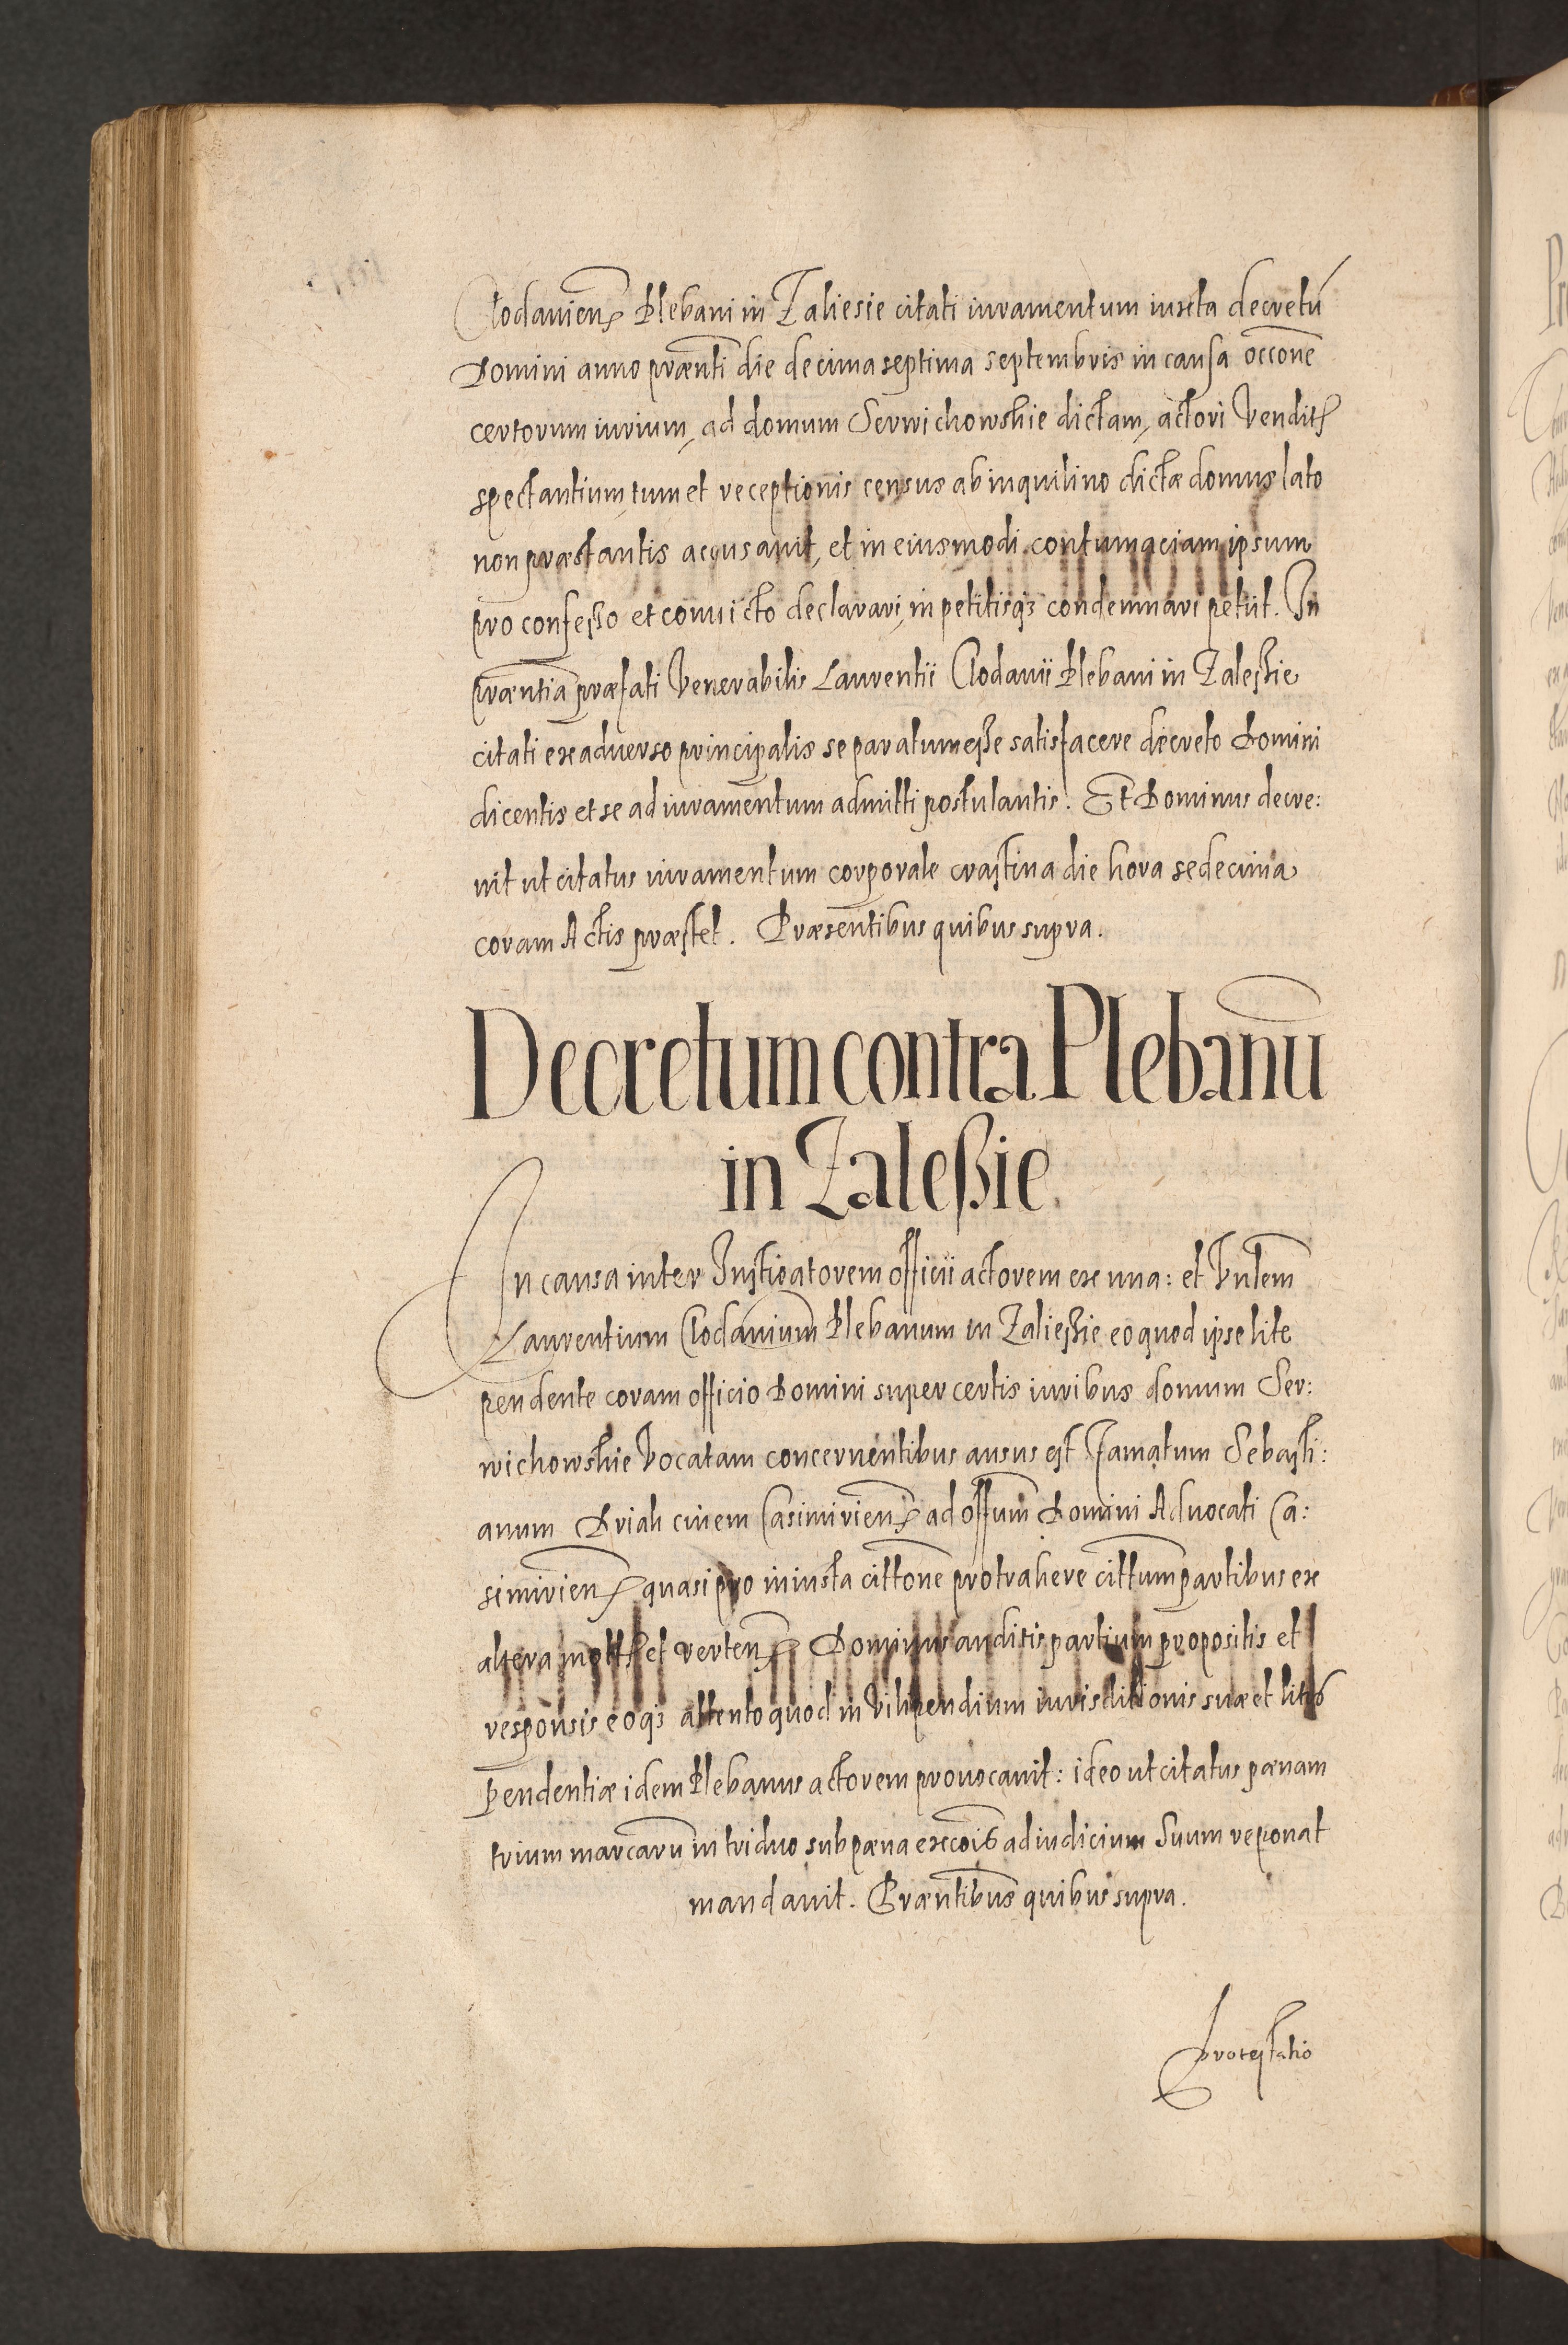 Clodavien̄ Plebani in Zaliesie citati iuramentum iuxta decretū
Domini anno præn̄ti die decima septima septembris in causa occōne
certorum iurium, ad domum Serwichowskie dictam, actori Vendit͛
spectantium, tum et receptionis census ab inquilino dictæ domus lato
non præstantis accusavit, et in eiusmodi contumaciam ipsum
pro confesso et convicto declarari, in petitisq; condemnari petiit. In
præn̄tia præfati Venerabilis Laurentii Clodavii Plebani in Zaleßie
citati ex adverso principalis se paratum eße satisfacere decreto Domini
dicentis et se ad iuramentum admitti postulantis. Et Dominus decre:
vit ut citatus iuramentum corporale crastina die hora sedecima
coram Actis præstet. Præsentibus quibus supra.
Decretum contra Plebanū
in Zaleßie.
In causa inter Instigatorem officii actorem ex una: et Vnlem̄
Laurentium Clodavium Plebanum in Zaließie eo quod ipse lite
pendente coram officio Domini super certis iuribus domum Ser:
wichowskie Vocatam concernentibus ausus est Famatum Sebasti:
anum Driak civem Casimirien̄ ad offum̄ Domini Advocati Ca:
simirien̄ quasi pro iniusta cittōne protrahere cittum̄ partibus ex
altera mott͛ et verten̄ Dominus auditis partium propositis et
responsis eoq; attento quod in Vilipendium iurisditionis suæ et litis
Pendentiæ idem Plebanus actorem provocavit: ideo ut citatus pænam
trium marcarū in triduo sub pæna excōis ad iudicium Suum reponat
mandavit. Præn̄tibus quibus supra.
Protestatio